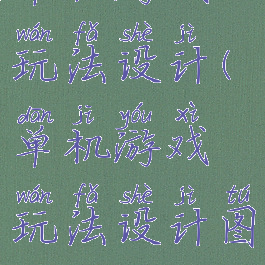 wán fǎ shè jì
玩法设计(
dān jī yóu xì
单机游戏
wán fǎ shè jì tú
玩法设计图